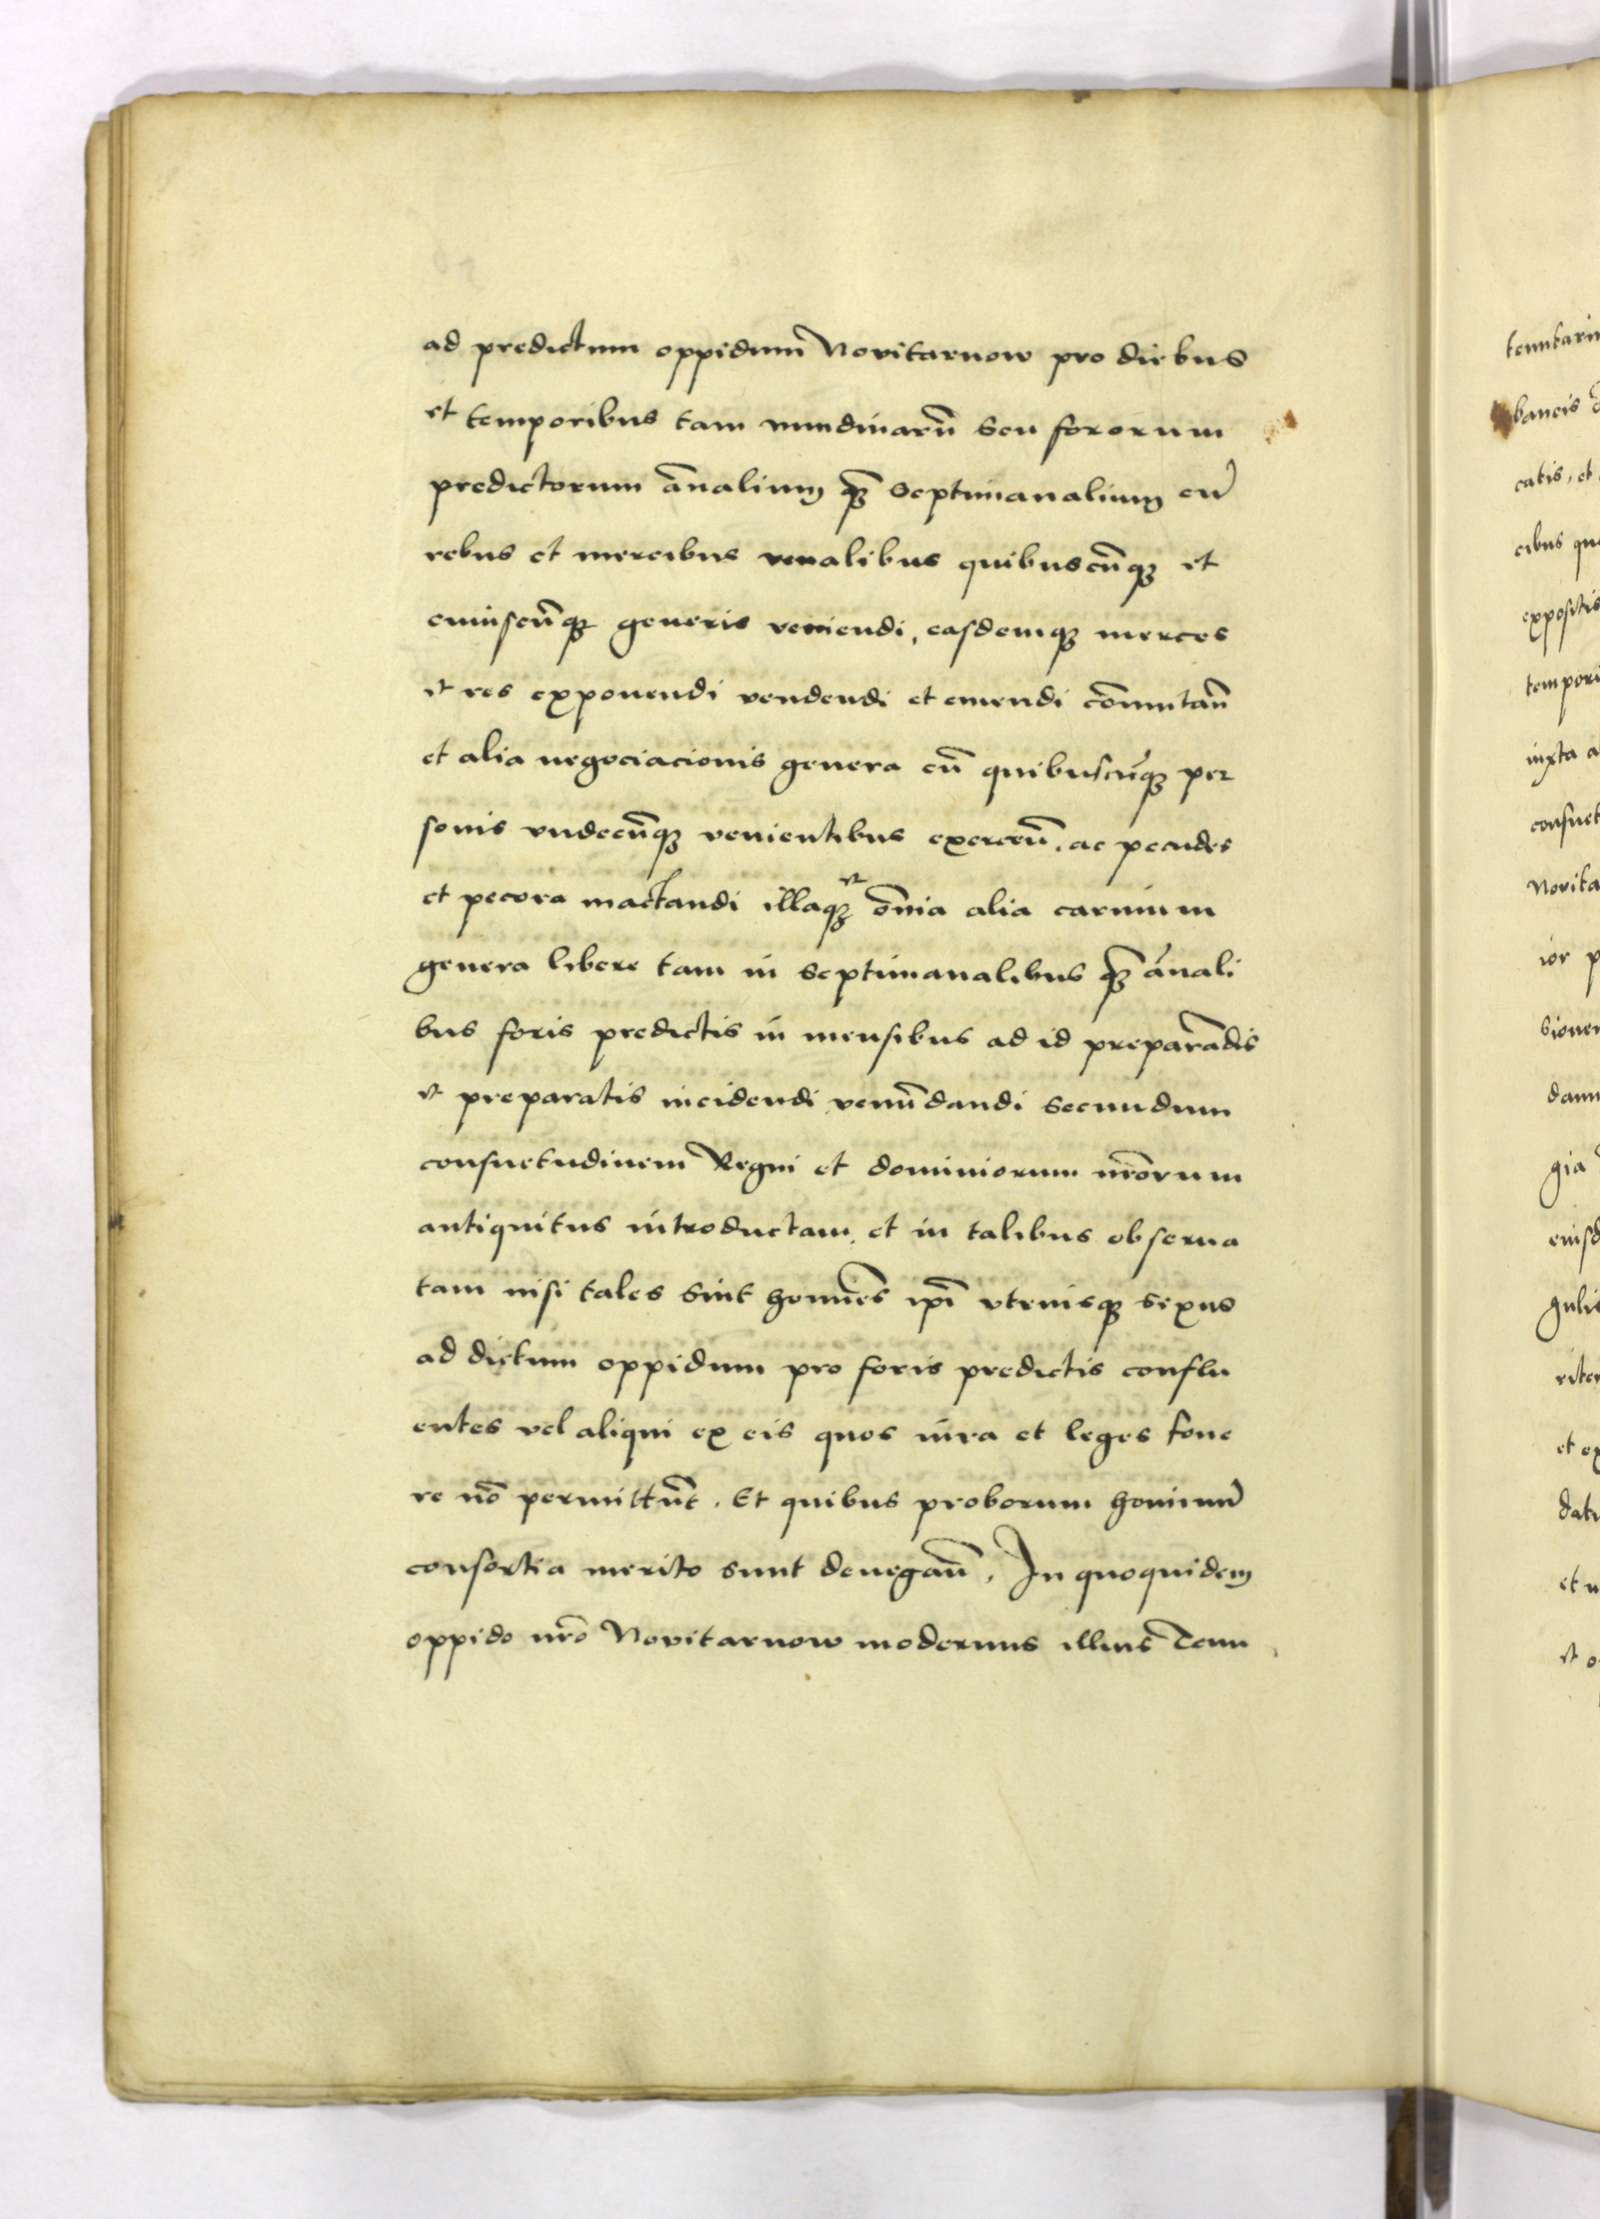 ad predictum oppidum Novitarnow pro diebus
et temporibus tam nundinarū seu fororum
predictorum ānalium quā septimanalium cū
rebus et mercibus venalibus quibuscūqȝ et
cuiuscūqȝ generis veniendi, easdemqȝ merces
et res exponendi vendendi et emendi cōmutañ
et alia negociacionis genera cū quibuscūqȝ per
sonis vndecūqȝ venientibus exerceñ, ac pecudes
et pecora mactandi illaqȝ et ōnia alia carnium
genera libere tam in septimanalibus quā ānali
bus foris predictis in mensibus ad id preparādis
et preparatis incidendi venūdandi secundum
consuetudinem Regni et dominiorum nr̄orum
antiquitus introductam, et in talibus obserua
tam nisi tales sint homīes ip̄i vtriusqȝ sexus
ad dictum oppidum pro foris predictis conflu
entes vel aliqui ex eis quos iura et leges foue
re nō permittūt. Et quibus proborum hominū
consortia merito sunt denegañ. In quoquidem
oppido nr̄o Novitarnow modernus illius Tenu
tenutari
bancis
catis, et
cibus qu
expositis
tempori
iuxta a
consuet
Novita
ior p
sionem
dam
gia
eiusd
gulis
riter
et ex
datu
et
et o